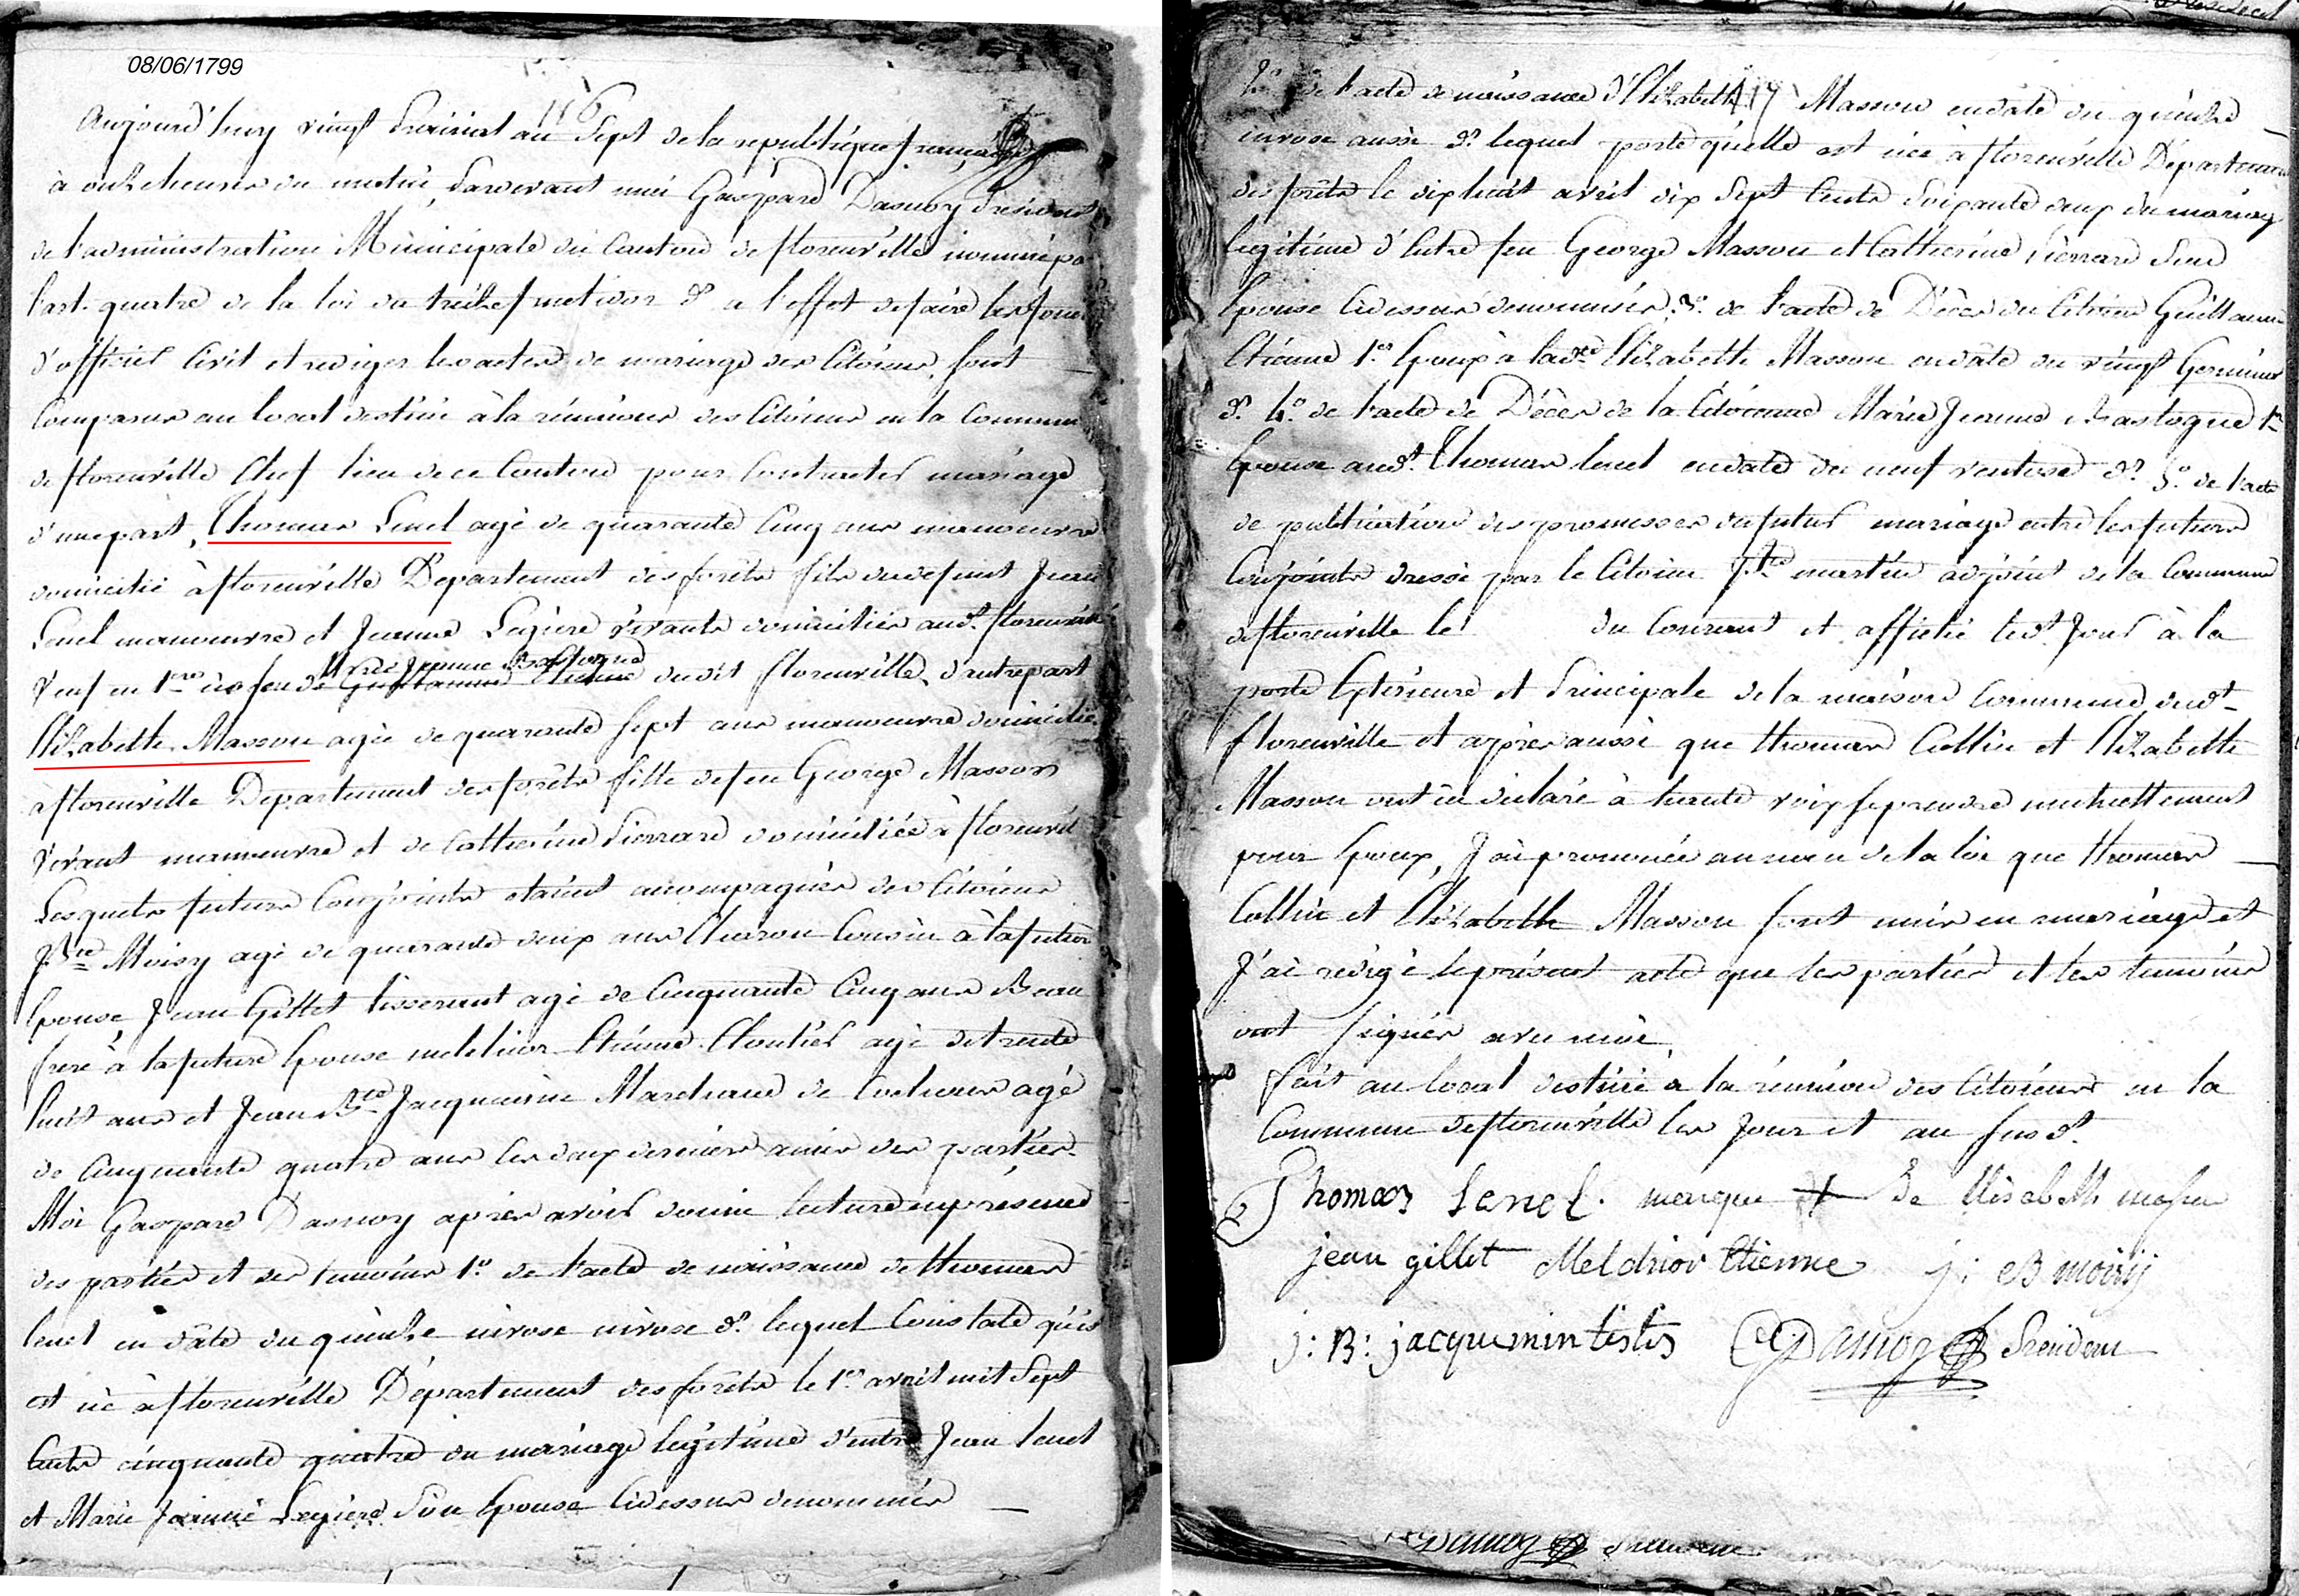 08/06/1799
116
Aujourd'huy vingt Prairial an Sept de la republique française
à onze heures du matin, Pardevant moi Gaspard Dasnoy Président
de l'administration Municipale du Canton de florenville nommé pa
l'art. quatre de la loi du treize fructidor dr a l'effet de faire les fonc
d'officier Civil et rediger les actes de mariage des Citoiens, sont
Comparus au local destiné à la réunion des Citoiens en la Commune
de florenville Chef lieu de ce Canton pour Contracter mariage
d'une part, Thomas Lenel agé de quarante Cinq ans manoeuvre
domicilié à florenville Departement des forêts fils du defunt Jean
Lenel manoeuvre et Jeanne Legiere vivants domiciliés audt. florenville
Veuf en 1ères nôs feu de Guillaume Etienne Marie Jeanne Bastogne dudit florenville, d'autre part
Elizabette Masson agée de quarante Sept ans manoeuvre domiciliée
à florenville Departement des forêts fille de feu George Masson
vivant manoeuvre et de Catherine Pierrard domiciliée à florenvil
Lesquels futurs Conjoints étaient accompagnés des Citoiens
J. Bte Moisy agé de quarante deux ans Charon Cousin à la future
Epouse, Jean Gillet tisserant agé de Cinquante Cinq ans Beau
frere à la future Epouse melchior Etienne Cloutier agé de trente
huit ans et Jean Bte Jacquemin Marchand de Cochons agé
de Cinquante quatre ans les deux derniers amis des parties.
Moi Gaspard Dasnoy après avoir donné lecture en présence
des parties et des temoins 1o. de l'acte de naissance de Thomas
lenel en date du quinze nivose nivose dr. lequel Constate qu'il
est né à florenville Département des forêts le 1er avril mil Sept
Cents cinquante quatre du mariage legitime d'entre Jean lenel
et Marie Jeanne Legiere Son Epouse Cidessus denommés
2o. de l'acte de naissance d'Elizabette 117 Masson en date du quinze
nivose aussi dr. lequel porte qu'elle est née à florenville Departement
des forêts le dix huit avril dix Sept Cents Soixante deux du mariage
legitime d'Entre feu George Masson et Catherine Pierrard Son
Epouse Cidessus denommés, 3o. de l'acte de Décès du Citoien Guillaume
Etienne 1er Epoux à ladte Elizabette Masson en date du vingt Germinal
dr. 4o. de l'acte de Décès de la Citoienne Marie Jeanne Bastogne 1re
Epouse audt. Thomas lenel en date du neuf ventose dr. 5o. de l'acte
de publication des promesses du futur mariage entre les futurs
Conjoints dressé par le Citoien martin adjoint de la Commune
de florenville le du Courant et affiché ledt. Jour à la
porte Exterieure et Principale de la maison Commune dudt
florenville et après aussi que Thomas Collin et Elizabette
Masson ont eu declaré à haute voix se prendre mutuellement
pour Epoux, J'ai prononcé au nom de la loi que Thomas
Collin et Elizabette Masson sont unis en mariage et
J'ai redigé le présent acte que les parties et les temoins
ont signés avec moi.
fait au local destiné a la réunion des Citoiens en la
Commune de florenville les Jour et an susdt.
Thomas Lenel. marque + de Elisabeth masson
jean gillet Melchior Etienne j: B moisij
j: B: jacquemin testis GDasnoy President
GDasnoy President